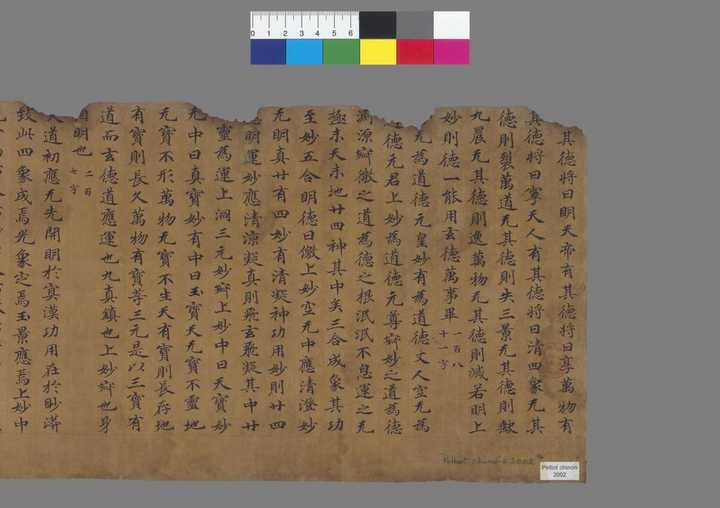 其德將曰明天帝有其德將曰享萬物有
其德將曰寧天人有其德將曰清四象无其
德則裂萬道无其德則失三景无其德則歇
九晨无其德則逸萬物无其德則滅若明上
妙則德一能用玄德萬事畢 一百八十一字
无為道德元皇妙有為道德丈人空无為
德元君上妙為道德元尊
淵源 微之道為德之根泯泯不息運之无
極未天未地廿四神其中矣三合成象其功
至妙五合明德曰徼上妙空无中應清澄妙
无明真廿有四妙有清凝神功用妙則廿四
明運妙應清凉凝真則飛玄飛凝其中廿
靈為運上洞三元妙 上妙中曰天寶妙
无中曰真寶妙有中曰玉寶天无寶不靈地
无寶不形萬物无寶不生天有寶則長存地
有寶則長久萬物有寶等三元是以三寶有
道而玄德道應運也九真鎮也上妙 也身
明也 二百七字
道初應无光開明於寘漠功用在於眇漭
致此四象成焉光象定焉玉景應焉上妙中
Pelliot chinois 2002
Pelliot chinois
2002
0 1 2 3 4 5 6